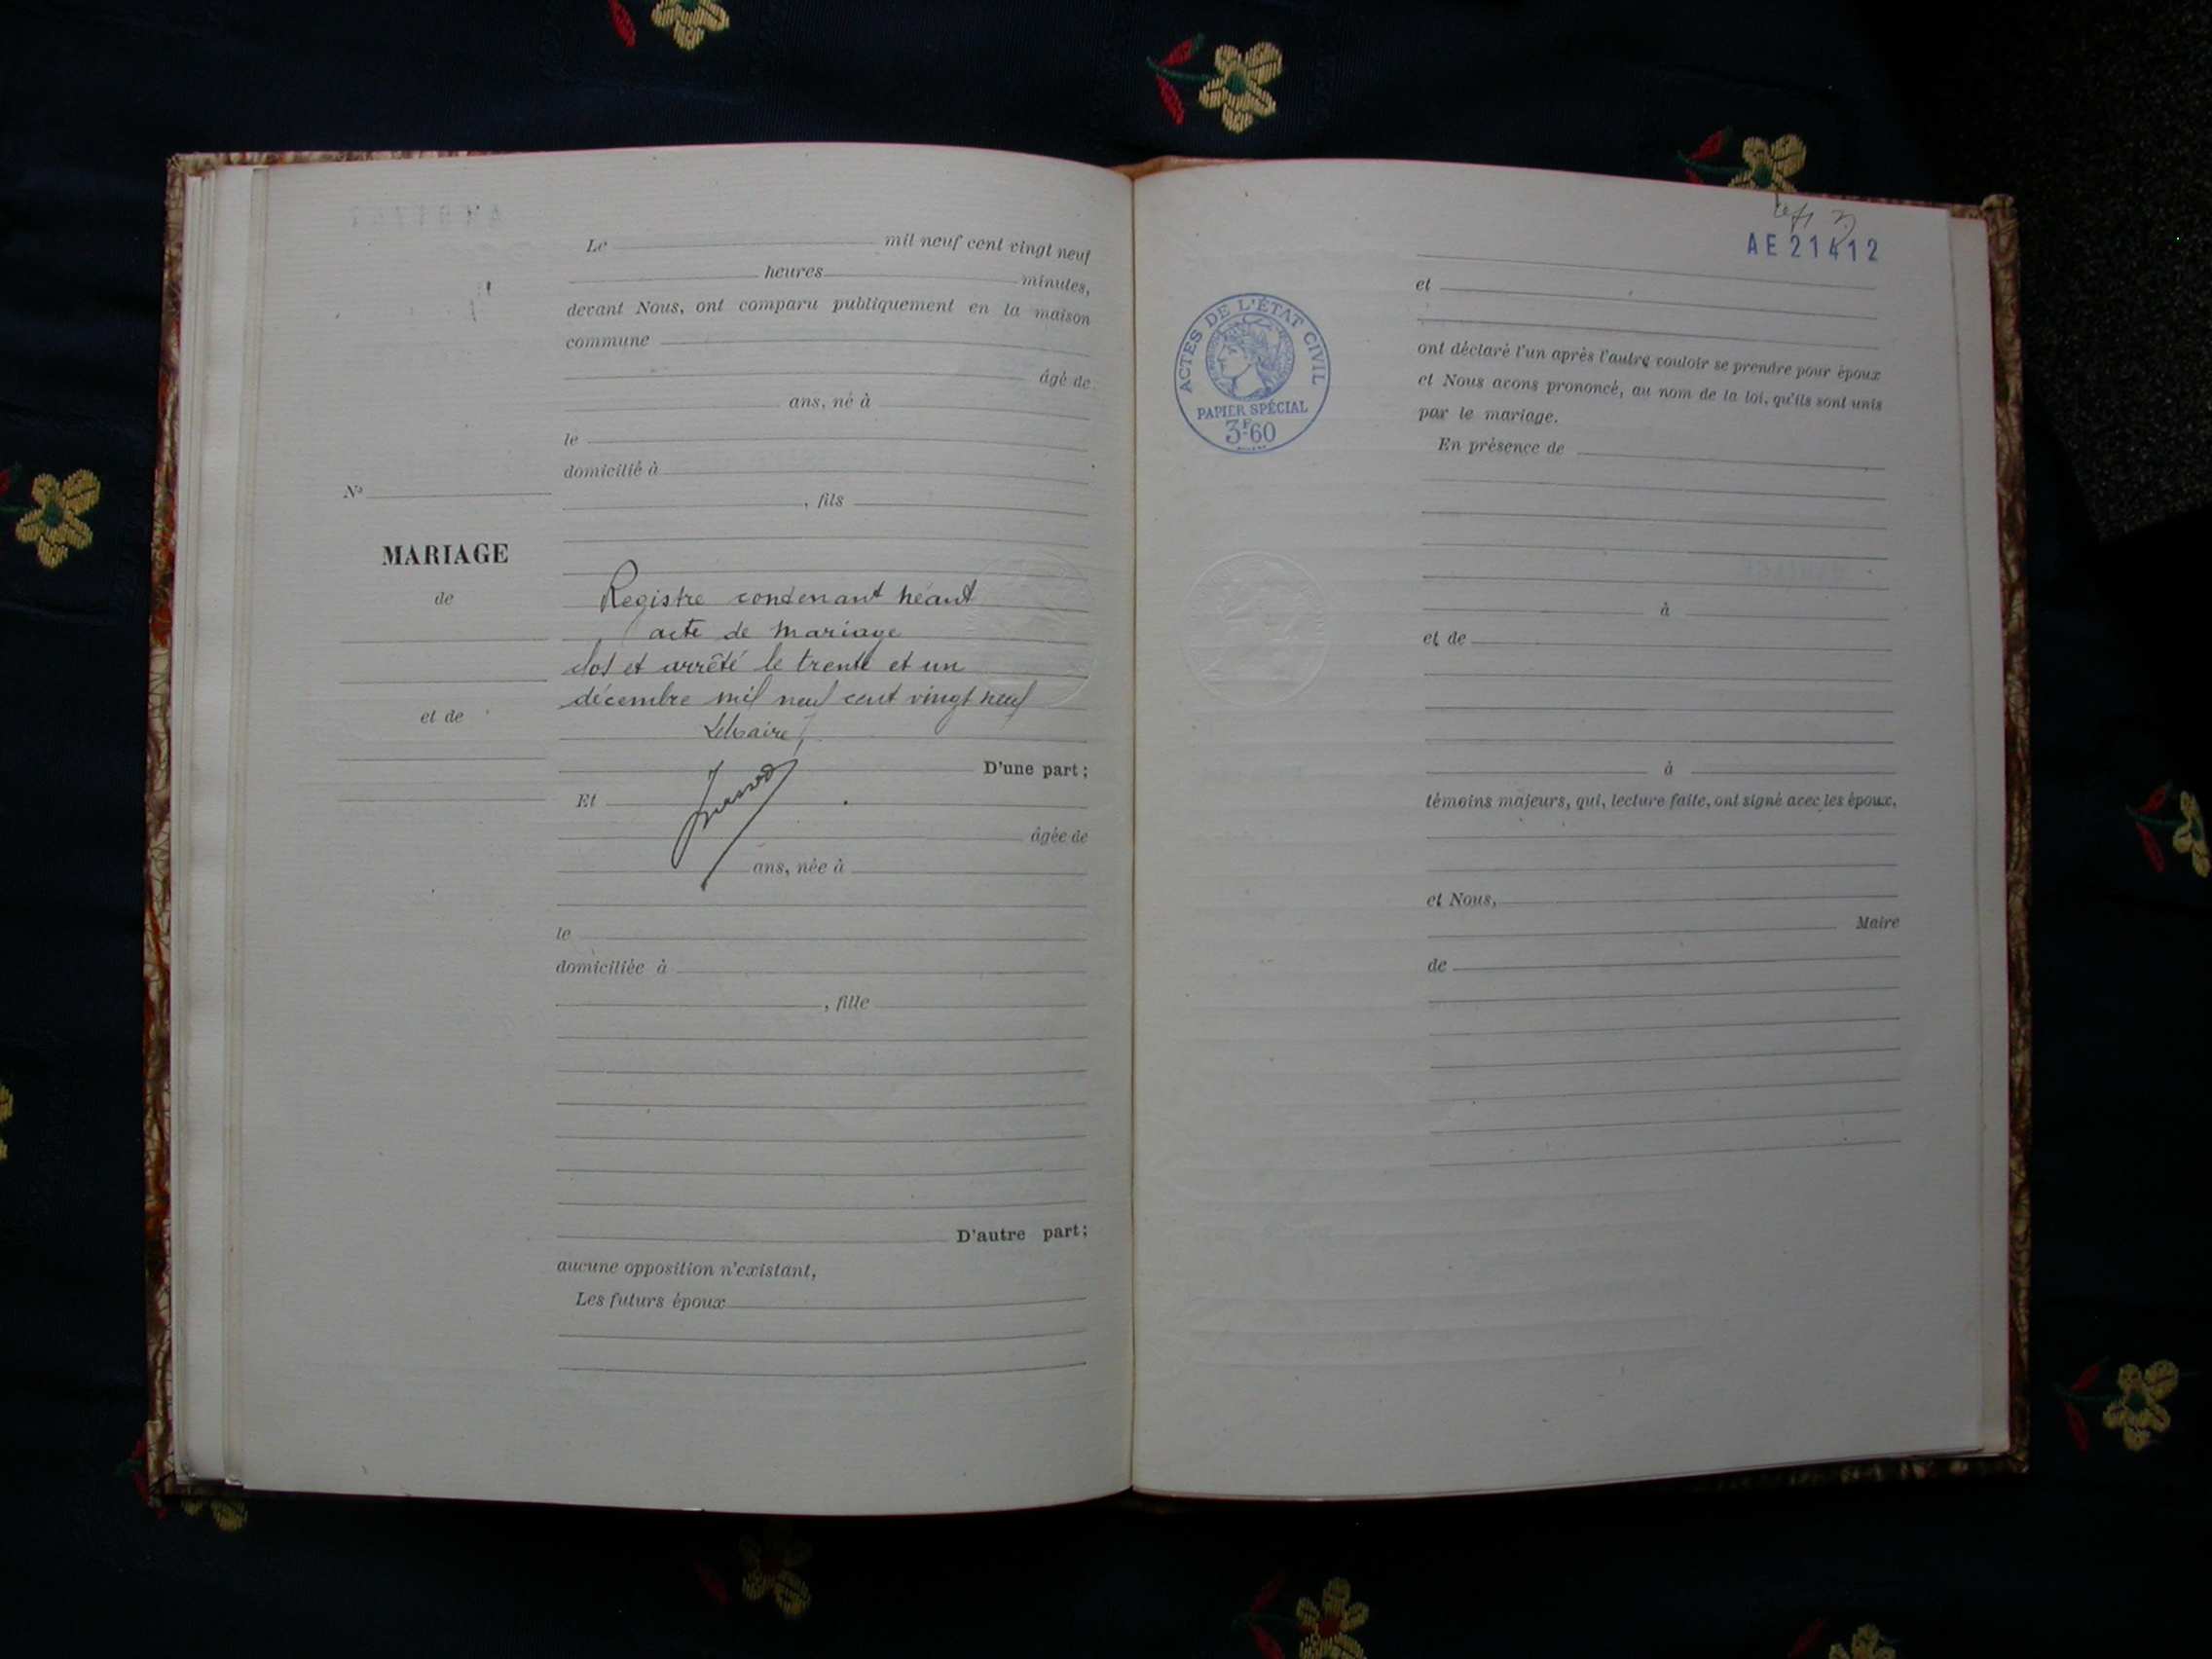 Le mil neuf cent vingt neuf
heures minutes,
devant Nous, ont comparu publiquement en la maison
commune
âgé de
ans, né à
le
domicilié à
, fils
Nº
MARIAGE
de
et de
Registre contenant néant
acte de mariage
clos et arrêté le trente et un
décembre mil neuf cent vingt neuf
Le Maire,
D'une part ;
Et
âgée de
ans, née à
le
domiciliée à
, fille
D'autre part ;
aucune opposition n'existant,
Les futurs époux
AE 21412
ACTES DE L'ÉTAT CIVIL
PAPIER SPÉCIAL
3F60
et
ont déclaré l'un après l'autre vouloir se prendre pour époux
et Nous avons prononcé, au nom de la loi, qu'ils sont unis
par le mariage.
En présence de
à
et de
à
témoins majeurs, qui, lecture faite, ont signé avec les époux,
et Nous,
Maire
de